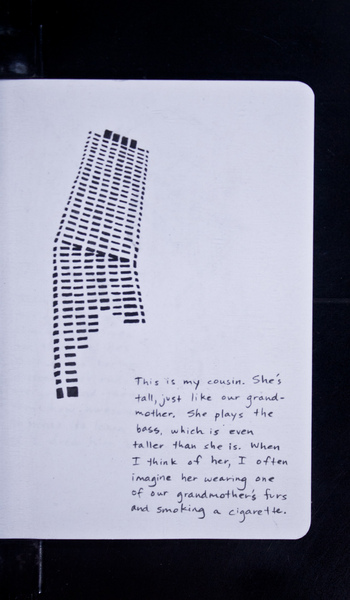 This is my cousin. She's
tall, just like our grand-
mother. She plays the
bass, which is even
taller than she is. When
I think of her, I often
imagine her wearing one
of our grandmother's furs
and smoking a cigarette.